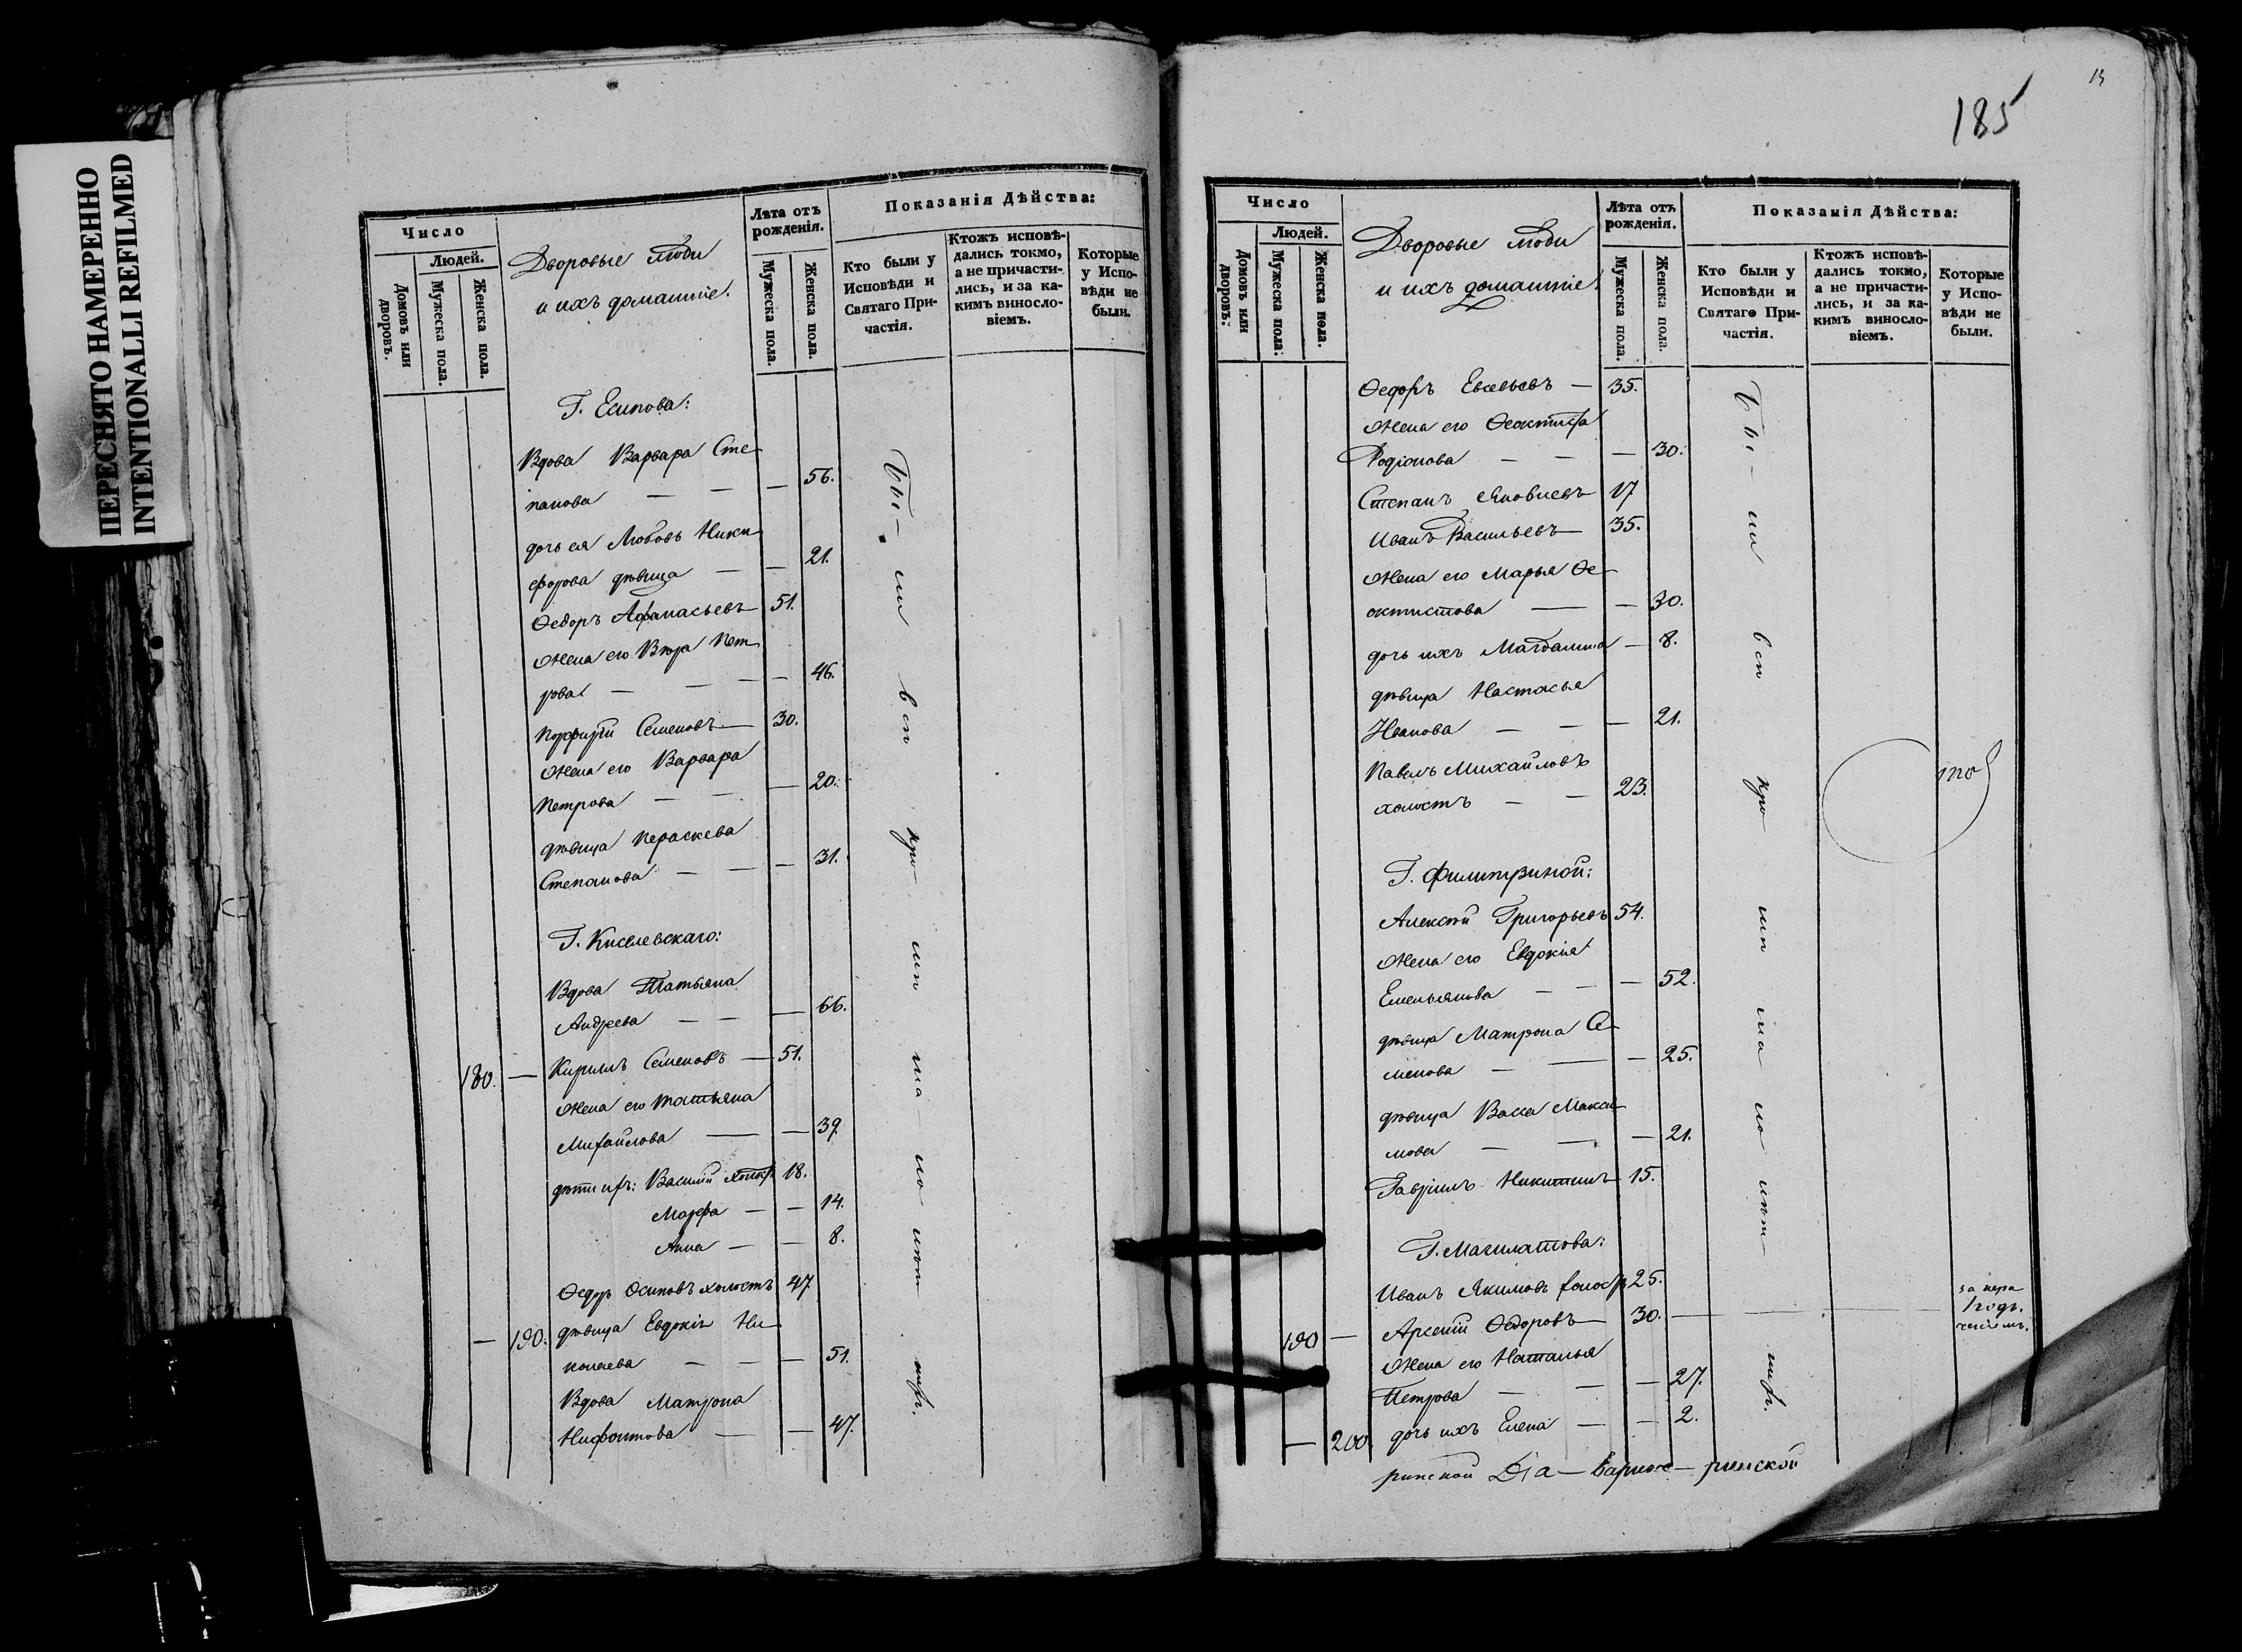 ПЕРЕСНЯТО НАМЕРЕННО
INTENTIONALLI REFILMED
Число
Людей.
Домовъ или дворовъ.
Мужеска пола.
Женска пола.
Дворовые люди
и ихъ домашніе.
Лѣта отъ рожденія.
Мужеска пола.
Женска пола.
Показанія Дѣйства:
Кто были у Исповѣди и Святаго Причастія.
Ктожъ исповѣдались токмо, а не причастились, и за какимъ винословіемъ.
Которые у Исповѣди не были.
Г. Есипова:
Вдова Варвара Сте-
панова — — — 56.
дочь ея Любовь Ники-
форова дѣвица — — 21.
Ѳедоръ Афанасьевъ 51.
Жена его Вѣра Пет-
рова — — — — 46.
Порфирій Семеновъ — 30.
Жена его Варвара
Петрова — — — 20.
дѣвица Пераскева
Степанова — — — 31.
Г. Киселевскаго:
Вдова Татьяна
Андреева — — — 66.
180. — Кирилъ Семеновъ — 51.
Жена его Татьяна
Михайлова — — 39.
дѣти ихъ: Василій холостъ 18.
Марфа — — 14.
Анна — — 8.
Ѳедоръ Осиповъ холостъ 47
— 190. дѣвица Евдокія Ни-
колаева — — — 51.
Вдова Матрона
Нифонтова — — 47.
Бы-
ли
всѣ
кро-
мѣ
ма
ло
лѣт-
нихъ.
13
185
Число
Людей.
Домовъ или дворовъ.
Мужеска пола.
Женска пола.
Дворовые люди
и ихъ домашніе.
Лѣта отъ рожденія.
Мужеска пола.
Женска пола.
Показанія Дѣйства:
Кто были у Исповѣди и Святаго Причастія.
Ктожъ исповѣдались токмо, а не причастились, и за какимъ винословіемъ.
Которые у Исповѣди не были.
Ѳедоръ Евсевьевъ — 35.
Жена его Ѳеоктиста
Родіонова — — — 30.
Степанъ Яковлевъ 17
Иванъ Васильевъ — 35.
Жена его Марья Ѳе-
октистова — — 30.
дочь ихъ Магдалина — 8.
дѣвица Настасья
Иванова — — 21.
Павелъ Михайловъ
холостъ — — 23.
Г. Филитриной:
Алексѣй Григорьевъ 54.
Жена его Евдокія
Емельянова — — — 52.
дѣвица Матрона Се-
менова — — — 25.
дѣвица Васса Макси-
мова — — — 21.
Гавріилъ Никитинъ 15.
Г. Магилатова:
Иванъ Якимовъ холостъ 25.
190 — Арсеній Ѳедоровъ — 30. — — — за нера
Жена его Наталья
Петрова — — — 27.
— 200. дочь ихъ Елена — — 2.
Бы-
ли
всѣ
кро-
мѣ
ма
ло
лѣт-
нихъ.